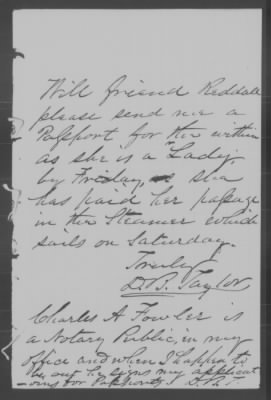 Will friend Reddall
please send me a
Passport for the within
as she is a Lady
by Friday, she
has paid her passage
in the Steamer which
sails on Saturday.
Truly
D.B. Taylor
Charles A Fowler is
a Notary Public, in my
office and when I happen to
be out he signs my applicat
-ions for Passports D.B.T